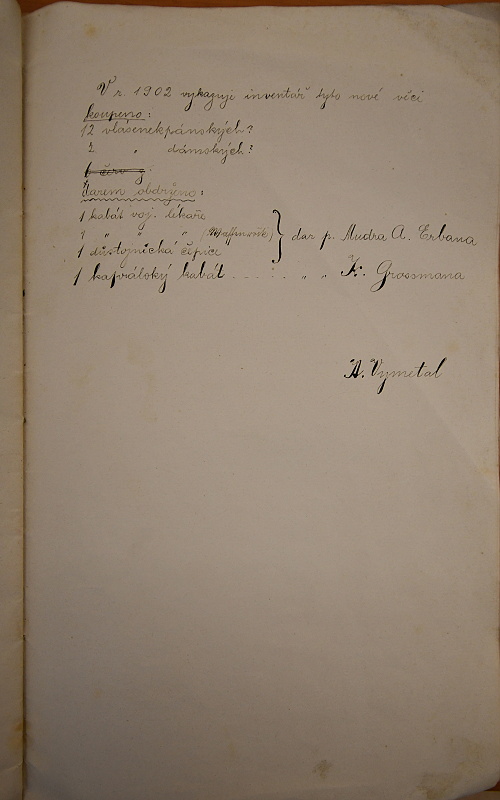 V r. 1902 vykazuje inventář tyto nové věci
koupeno:
12 vlásenek pánských?
2 " dámských?
Darem obdrženo:
1 kabát voj. lékaře
1 " " " (Waffenrock)
1 důstojnická čepice
} dar p. Mudra A. Erbana
1 kaprálský kabát . . . . : " " K. Grossmana
A. Vymetal